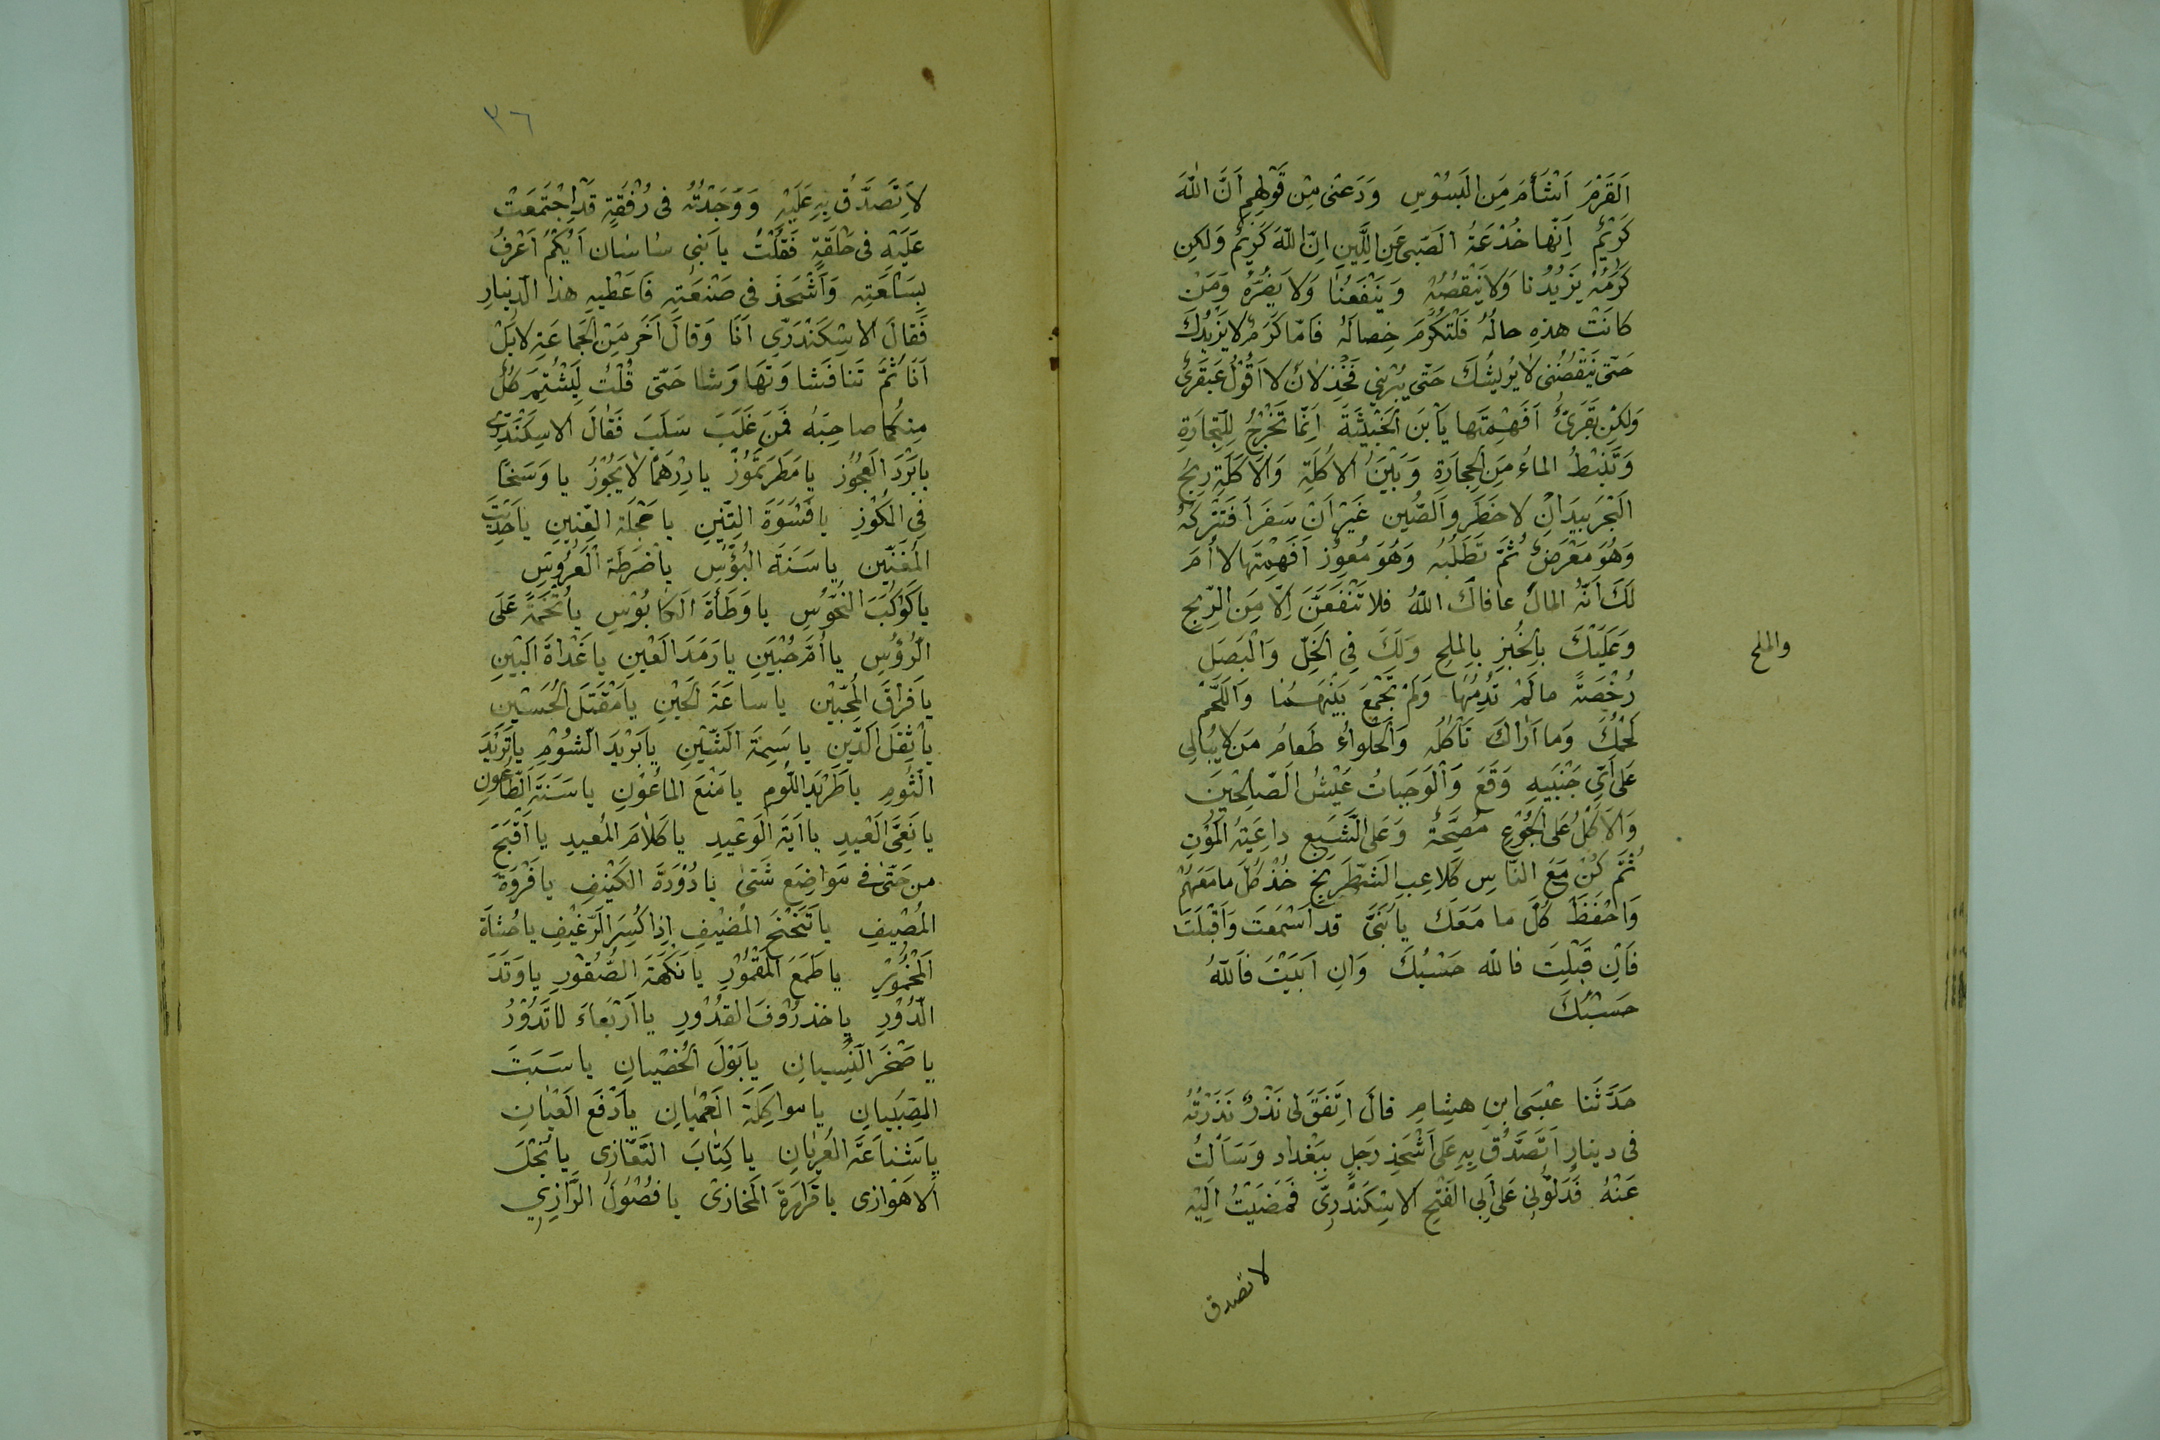 اَلقَرْمَ اَشْأَمَ مِنَ البَسُوْسِ وَدَعْنى مِنْ قَوْلِهِمِ اَنَّ اللّٰهَ
كَرِيْمٌ اِنَّها خُدْعَةُ الصَّبى عَنِ اللَّبَنِ اِنَّ اللّٰهَ كَرِيْمٌ وَلكِنِ
كَرَمُهُ يَزِيْدُنا وَلا يَنْقُصُهُ وَيَنْفَعُنا وَلا يَضُرُّهُ وَمَنْ
كانَتْ هذِهِ حالُهُ فَلْتَكْرُمَ خِصالُهُ فَامّا كَرَمٌ لا يَزِيْدُكَ
حَتّى يَنْقُصَنى لا يُريْشُكَ حَتّى يَبْرِيَنِي فَخِذْلانٌ لا اَقُوْلُ عَبْقَرِيٌّ
وَلكِنْ بَقَرِيٌّ اَفَهِمْتَها يَابْنَ اْلخَبِيْثَةِ اِنَّما تَخْرُجُ لِلتِّجارَةِ
وَتَنْبُطُ الماءُ مِنَ الحِجارَةِ وَبَيْنَ الاُكْلَةِ وَالاَكْلَةِ رِيْحُ
الْبَحْرِ بَيْدَ اَنْ لا خَطَرَ وَالصِّين غَيْرَ اَنْ سَفَرَ اَفَتَتْرُكَهُ
وَهُوَ مَعْرَضٌ ثُمَّ تَطْلُبُهُ وَهُوَ مُعْوِزٌ اَفَهِمْتَها لا اُمَّ
لَكَ اَنَّهُ المالُ عافاكَ اللّٰهُ فلا تُنْفِقَنَّ اِلّا مِنَ الرِّبْحِ
وَعَلَيْكَ بالْخُبْزِ بِالمِلْحِ وَلَكَ فِي الْخَلِّ وَالْبَصَلِ
والملح
رُخْصَةٌ ما لَمْ تَذُمَّهُما وَلَمْ تَجْمَعْ بَيْنَهُما وَاللَّحْمُ
لَحْمُكَ وَما اَراكَ تَأْكُلُهُ وَالْحُلْواءُ طَعامُ مَن لا يُبالِي
عَلى اَيِّ جَنْبَيْهِ وَقَعَ وَالْوَجَباتُ عَيْشُ الصّالِحْينَ
وَالاَكْلُ عَلى الْجُوْعِ مُصِحَّةٌ وَعَلى الشَّبَعِ داعِيَةُ الْمَوْتِ
ثُمَّ كُنْ مَعَ النّاسِ كَلاعِبِ الشَّطْرَنْجِ خُذْ كُلَّ ما مَعَهُمْ
وَاحْفَظْ كُلَّ ما مَعَكَ يا بُنَيَّ قد اَسْمَعْتَ وَاَقْبَلَتَ
فَاِنْ قَبِلْتَ فاللّٰه حَسْبُكَ وَاِن اَبَيْتَ فاللّٰهُ
حَسْبُكَ
حَدَّثَنا عْيسَى ابنِ هِشامِ قالَ اتَّفَقَ لى نَذْرٌ نَذَرْتُهُ
فى دينارٍ اَتَصَدَّقُ بِهِ عَلى اَشْحَذِ رَجُلٍ بِبَغْداد وَسَاَلْتُ
عَنْهُ فَدَلُّونى عَلى اَبِى الفَتْحِ الاِسْكَنْدَرِىّ فَمَضَيْتُ اِلَيْهِ
لا تصدق
٣٦
لاَتَصَدَّقَ بِهِ عَلَيْهِ وَوَجَدْتُهُ فى رُفْقَةٍ قَدْ اِجْتَمَعَتْ
عَلَيْهِ فى حَلْقَةٍ فَقُلْتُ يا بَنى ساسان اَيُّكُمْ اَعْرَفُ
بِسَلْعَتِهِ وَاَشْحَذُ فى صَنْعَتِهِ فَاَعْطيهِ هذا الدّينارِ
فَقالَ الاِسْكَنْدَرّي اَنَا وَقالَ آخَر مَن الجَماعَةِ لا بَلْ
اَنَا ثُمَّ تَناقَشا وَتَهارَشا حَتّى قُلْتُ لِيَشْتِمْ كُلٌّ
مِنْكُما صاحِبَهُ فَمَن غَلَبَ سَلَبَ فَقالَ الاسكَنْدَرِيُّ
يا بَرْدَ العَجُوْز يا مَطَر تَمُّوْزَ يا دِرْهَمًا لا يَجُوْزُ يا وَسَخًا
فِي الكُوْزِ يا قَسْوَةَ التِّنِّينِ يا خَجْلَة العِنّينِ يا حَدِيْثَ
المُغَنّين يا سَنَةَ البُؤْسِ يا ضَرطَةَ الْعَرُوسِ
يا كَوْكَبَ النُّحُوْسِ يا وَطَأَةَ الكابُوْسِ يا تُخْمَةً عَلَى
الرُّؤُسِ يا اُمَّ حُبَيْنٍ يا رَمَدَ العَيْنِ يا غَداةَ البَيْنِ
يا فِراقَ المُحِبّيْنِ يا ساعَةَ الحَيْنِ يا مَقْتَلَ الحُسَيْنِ
يا ثِقْلَ الدَّيْنِ يا سِمَةَ الشَّيْنِ يا بَرْيدَ الشُّوْمِ يا ثَريْدَ
الثُّومِ يا طَرْيدَ اللُّومِ يا مَنْعَ الماعُوْنِ يا سَنَةَ الطّاعُونِ
يا بَغِيَّ العَبْيدِ يا آيَةَ الوَعْيدِ يا كَلامَ المُعيدِ يا اَقْبَحَ
من حَتّى فى مَواضِعَ شَتّى يا دُوْدَةَ الكَنْيفِ يا فَرْوَةَ
المُصَيْفِ يا تَنَحْنُحَ المُضيْفِ اِذا كُسِرَ الرَّغْيفِ يا جُشأةَ
اَلْمَخْمُوْرِ يا طَمَعَ المَقْمُوْرِ يا نَكْهَةَ الصُّقوْرِ يا وَتَدَ
الدُّوْرِ يا خذْرُوْفَ القدُوْرِ يا اَرْبَعاءَ لا تَدُوْرُ
يا ضَجَرَ النِّسيانِ يا بَوْلَ الخُصْيانِ يا سَبَتَ
الصِّبْيانِ يا مواكِلَةَ العُمْيانِ يا دَفْعَ العَيْانِ
يا شَناعَةَ العُريانِ يا كِتابَ التَّعّازى يا بُخْلَ
الاَهْوازى يا قَراهرَةَ المَخازى يا فُضُوْلَ الرّازي